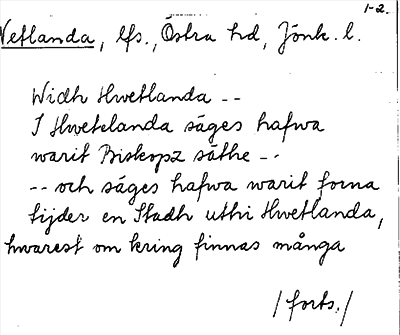 1-2.
Vetlanda, lfs., Östra hd, Jönk. l.
Widh Hwetlanda --
I Hwetelanda säges hafwa
warit Biskopz säthe --
-- och säges hafwa warit forna
tijder en Stadh uthi Hwetlanda,
hwarest om kring finnas många
/forts./